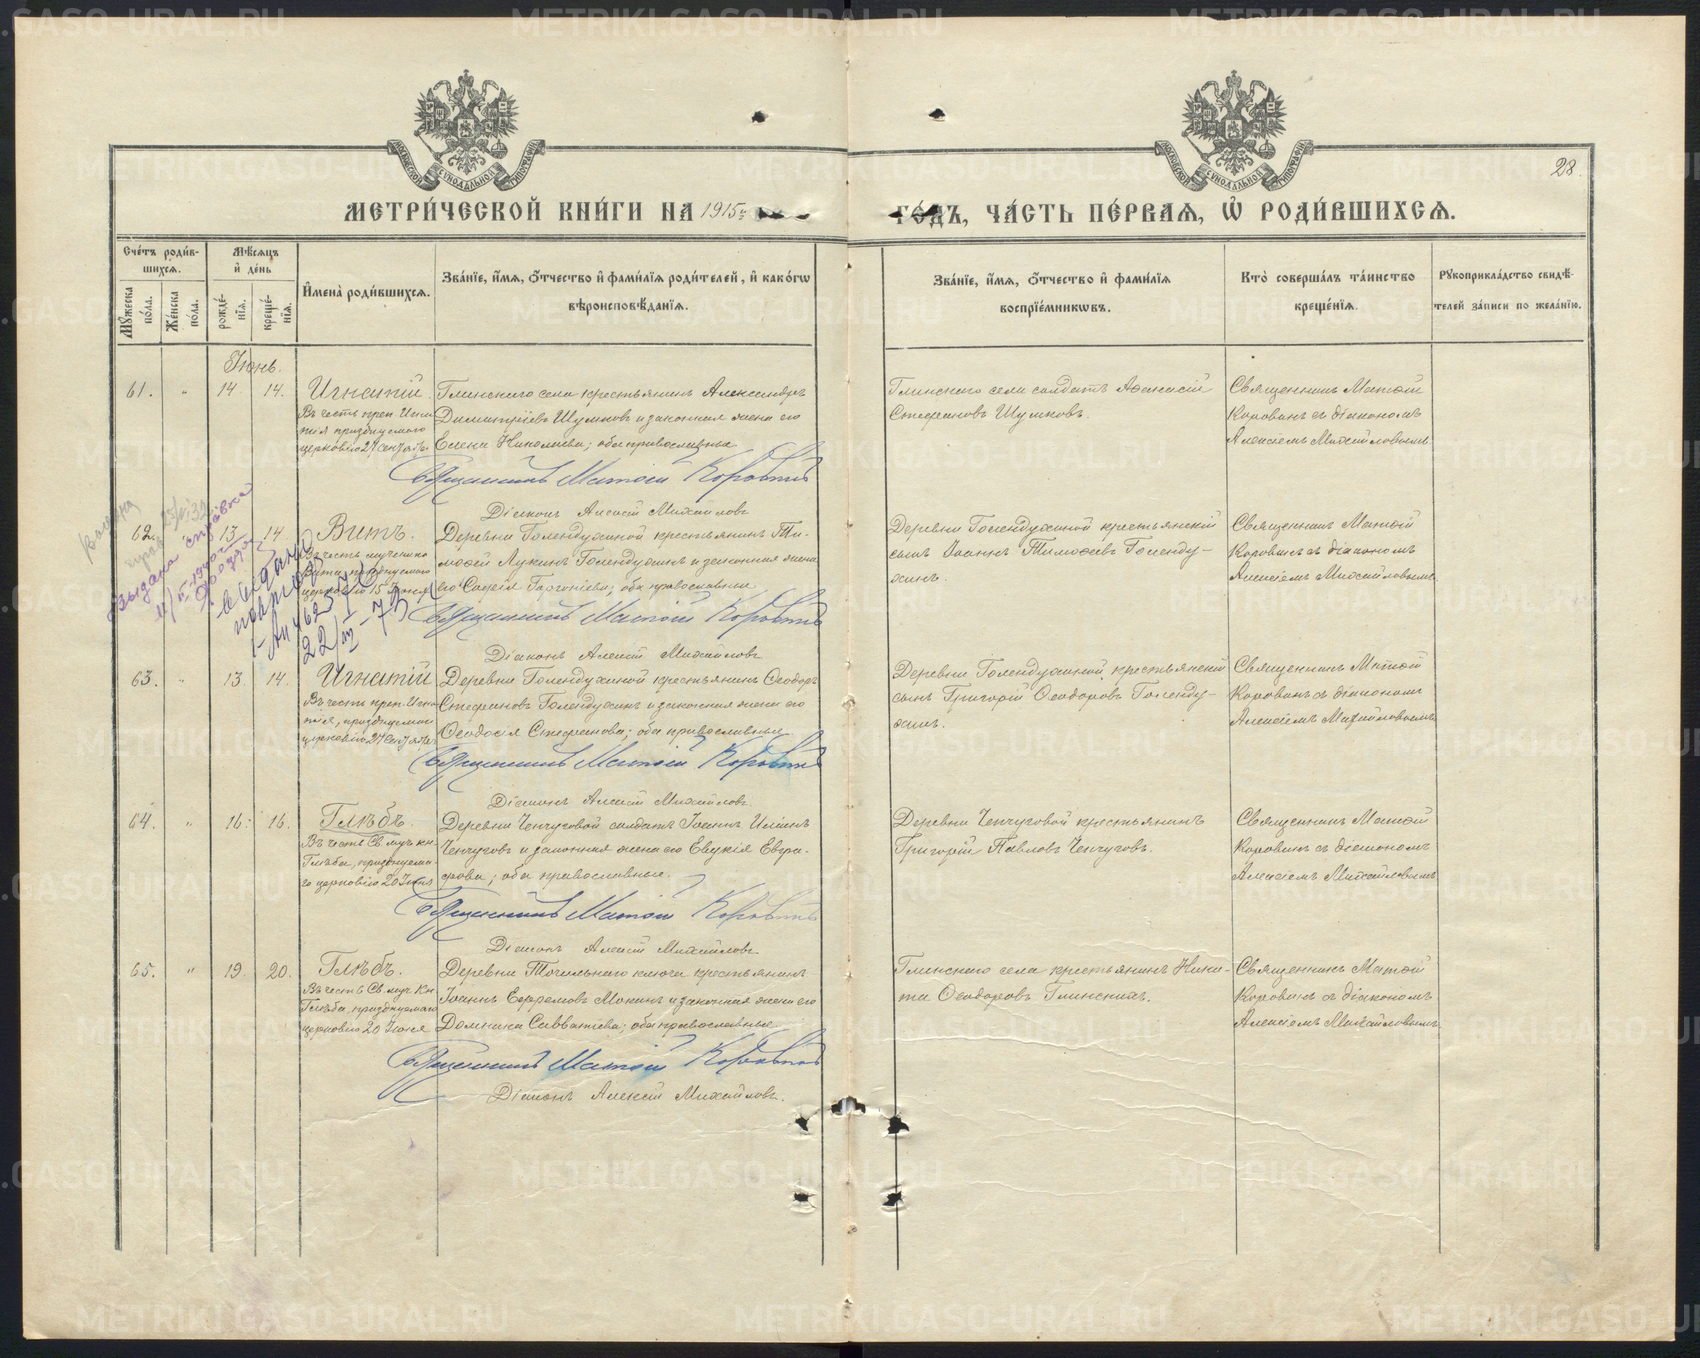 28.
МЕТРИ́ЧЕСКОЙ КНИ́ГИ НА 1915 г.
ГО́ДЪ, ЧА́СТЬ ПЕ́РВАЯ, Ѡ҆ РОДИ́ВШИХСЯ.
Сче́тъ роди́в-
шихся.
Мꙋ́жеска по́ла.
Же́нска по́ла.
Мѣ́сяцъ и҆ де́нь
рожде́-
нїя.
креще́-
нїя.
И҆мена̀ роди́вшихся.
Зва́нїе, и҆́мя, ѻ҆́тчество и҆ фами́лїя роди́телей, и҆ како́гѡ
вѣроисповѣ́данїя.
Зва́нїе, и҆́мя, ѻ҆́тчество и҆ фами́лїя
воспрїе́мникѡвъ.
Кто̀ соверша́лъ та́инство
креще́нїя.
Рꙋкоприкла́дство свидѣ́-
телей за́писи по жела́нїю.
Іюнь.
61. " 14. 14.
Игнатій.
Въ честь преп. Игна-
тія празднуемаго
церковію 27 Сентября.
Глинскаго села крестьянинъ Александръ
Димитріевъ Шумковъ и законная жена его
Елена Николаева; оба православные.
Священникъ Матѳій Коровинъ
Діаконъ Алексій Михайловъ
Глинскаго села солдатъ Аѳанасій
Стефановъ Шумковъ.
Священникъ Матѳій
Коровинъ съ діакономъ
Алексіемъ Михайловымъ
выдана справка
62. 13. 14
Витъ.
Въ честь мученика
Вита празднуемаго
церковію 15 Іюня
Деревни Голендухиной крестьянинъ Ти-
моѳей Лукинъ Голендухинъ и законная жена
его Софія Горгоніева; оба православные.
Священникъ Матѳій Коровинъ
Діаконъ Алексій Михайловъ
Деревни Голендухиной крестьянскій
сынъ Іоаннъ Тимоѳеевъ Голенду-
хинъ.
Священникъ Матѳій
Коровинъ съ діакономъ
Алексіемъ Михайловымъ
63. " 13. 14.
Игнатій
Въ честь преп. Игна-
тія, празднуемаго
церковію 27 Сентября
Деревни Голендухиной крестьянинъ Ѳеодоръ
Стефановъ Голендухинъ и законная жена его
Ѳеодосія Стефанова; оба православные.
Священникъ Матѳій Коровинъ
Діаконъ Алексій Михайловъ
Деревни Голендухиной, крестьянскій
сынъ Григорій Ѳеодоровъ Голенду-
хинъ.
Священникъ Матѳій
Коровинъ съ діакономъ
Алексіемъ Михайловымъ
64. " 16. 16.
Глѣбъ.
Въ честь Св. муч. кн.
Глѣба, празднуема-
го церковію 20 Іюня
Деревни Ченчуговой солдатъ Іоаннъ Ильинъ
Ченчуговъ и законная жена его Евдокія Евгра-
фова; оба православные.
Священникъ Матѳій Коровинъ
Діаконъ Алексій Михайловъ
Деревни Ченчуговой крестьянинъ
Григорій Павловъ Ченчуговъ.
Священникъ Матѳій
Коровинъ съ діакономъ
Алексіемъ Михайловымъ
65. " 19. 20.
Глѣбъ.
Въ честь Св. муч. Кн.
Глѣба, празднуемаго
церковію 20 Іюня
Деревни Точильнаго ключа крестьянинъ
Іоаннъ Ефремовъ Мокинъ и законная жена его
Домника Савватіева; оба православные
Священникъ Матѳій Коровинъ
Діаконъ Алексій Михайловъ.
Глинскаго села крестьянинъ Ники-
та Ѳеодоровъ Глинскихъ.
Священникъ Матѳій
Коровинъ съ діакономъ
Алексіемъ Михайловымъ
METRIKI.GASO-URAL.RU